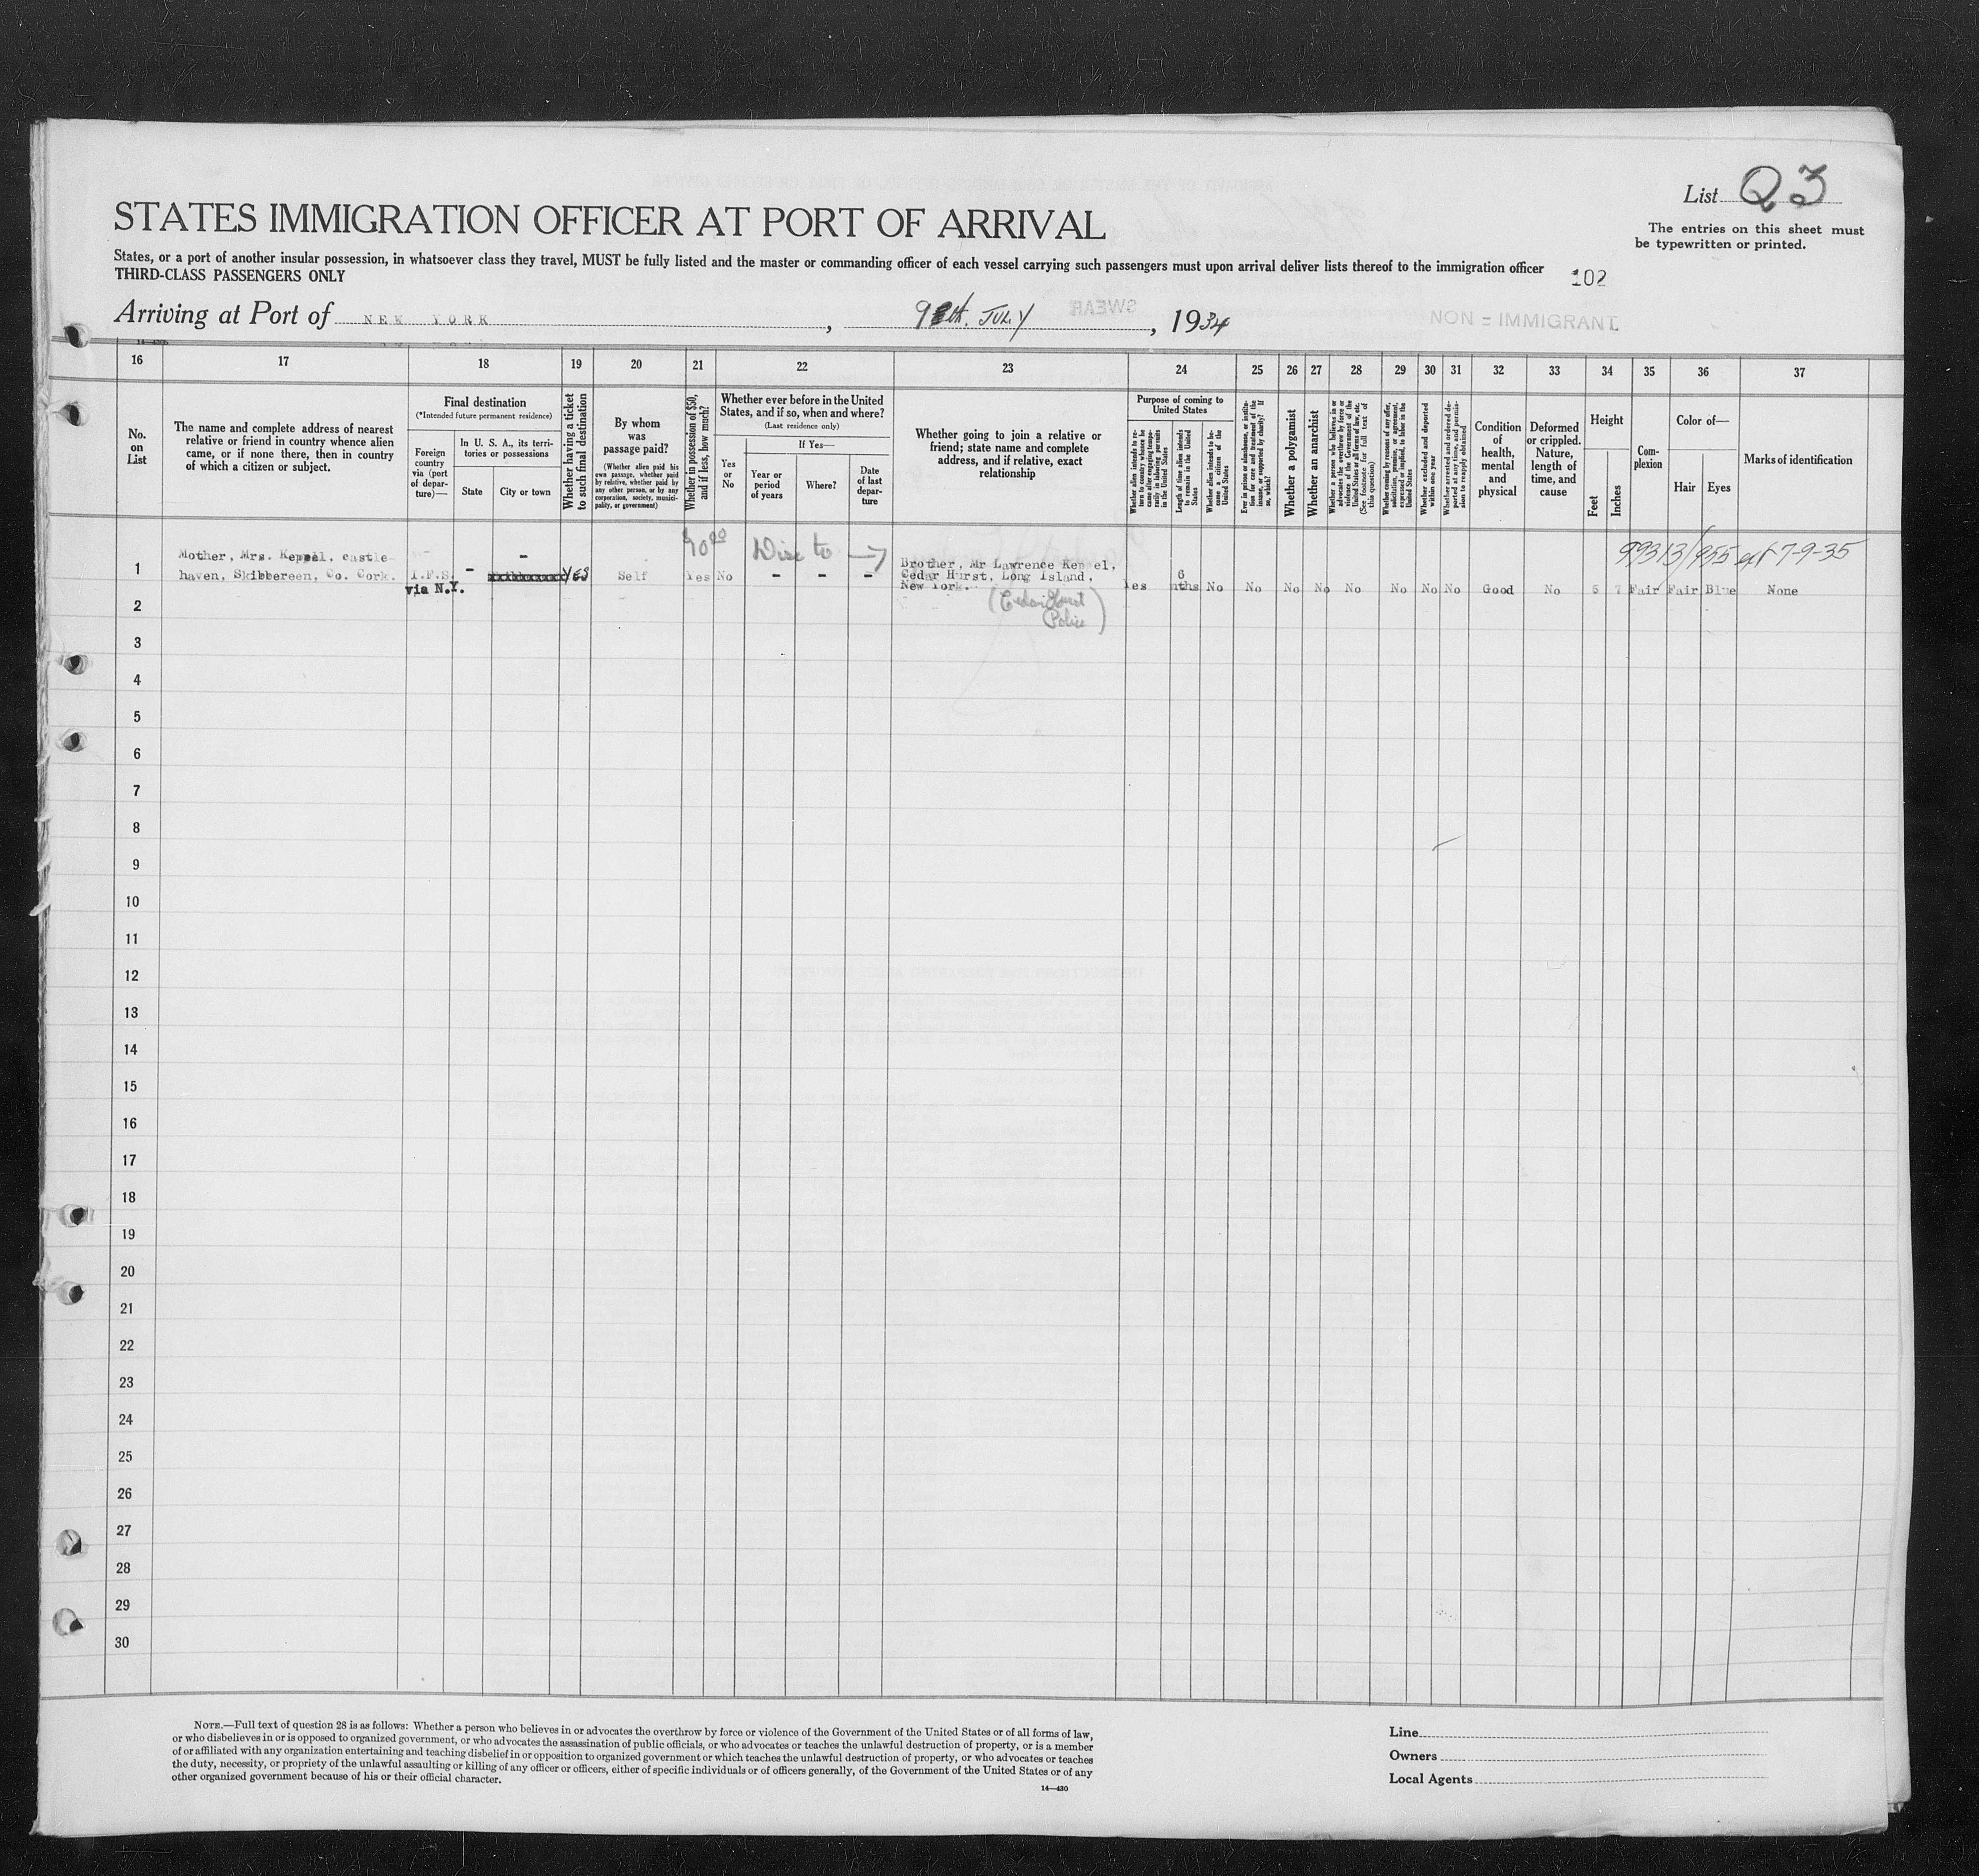 List Q3
The entries on this sheet must
be typewritten or printed.
STATES IMMIGRATION OFFICER AT PORT OF ARRIVAL
States, or a port of another insular possession, in whatsoever class they travel, MUST be fully listed and the master or commanding officer of each vessel carrying such passengers must upon arrival deliver lists thereof to the immigration officer
THIRD-CLASS PASSENGERS ONLY
102
Arriving at Port of NEW YORK, 9th, JULY, 1934
NON = IMMIGRANT
16 17 18 19 20 21 22 23 24 25 26 27 28 29 30 31 32 33 34 35 36 37
No.
on
List
The name and complete address of nearest
relative or friend in country whence alien
came, or if none there, then in country
of which a citizen or subject.
Final destination
(*Intended future permanent residence)
Foreign
country
via (port
of depar-
ture)—
In U. S. A., its terri-
tories or possessions
State
City or town
Whether having a ticket
to such final destination
By whom
was
passage paid?
(Whether alien paid his
own passage, whether paid
by relative, whether paid by
any other person, or by any
corporation, society, munici-
pality, or government)
Whether in possession of $50,
and if less, how much?
Whether ever before in the United
States, and if so, when and where?
(Last residence only)
Yes
or
No
If Yes—
Year or
period
of years
Where?
Date
of last
depar-
ture
Whether going to join a relative or
friend; state name and complete
address, and if relative, exact
relationship
Purpose of coming to
United States
Whether alien intends to re-
turn to country whence he
came after engaging tempo-
rarily in laboring pursuits
in the United States
Length of time alien intends
to remain in the United
States
Whether alien intends to be-
come a citizen of the
United States
Ever in prison or almshouse, or institu-
tion for care and treatment of the
insane, or supported by charity? If
so, which?
Whether a polygamist
Whether an anarchist
Whether a person who believes in or
advocates the overthrow by force or
violence of the Government of the
United States or all forms of law, etc.
(See footnote for full text of
this question)
Whether coming by reason of any offer,
solicitation, promise, or agreement,
expressed or implied, to labor in the
United States
Whether excluded and deported
within one year
Whether arrested and ordered de-
ported at any time, and permis-
sion to reapply obtained
Condition
of
health,
mental
and
physical
Deformed
or crippled.
Nature,
length of
time, and
cause
Height
Feet
Inches
Com-
plexion
Color of—
Hair
Eyes
Marks of identification
1
Mother, Mrs. Keppel, castle-
haven, Skibbereen, Co. Cork.
I.F.S.
via N.Y.
-
-
YES
Self
Yes
No
- - -
Brother, Mr Lawrence Keppel,
Cedar Hurst, Long Island,
New York.
(Cedarhurst
Police)
Yes
6
mths
No No No No No No No No Good No 5 7 Fair Fair Blue None
99313/955 ext 7-9-35
2
3
4
5
6
7
8
9
10
11
12
13
14
15
16
17
18
19
20
21
22
23
24
25
26
27
28
29
30
NOTE.—Full text of question 28 is as follows: Whether a person who believes in or advocates the overthrow by force or violence of the Government of the United States or of all forms of law,
or who disbelieves in or is opposed to organized government, or who advocates the assassination of public officials, or who advocates or teaches the unlawful destruction of property, or is a member
of or affiliated with any organization entertaining and teaching disbelief in or opposition to organized government or which teaches the unlawful destruction of property, or who advocates or teaches
the duty, necessity, or propriety of the unlawful assaulting or killing of any officer or officers, either of specific individuals or of officers generally, of the Government of the United States or of any
other organized government because of his or their official character.
14—430
Line
Owners
Local Agents